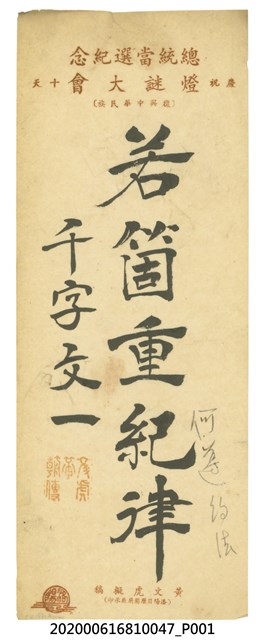 總統當選紀念
慶祝
燈謎大會
若箇重紀律
千字文一
何遵約法
黃文虎擬稿
202000616810047_P001